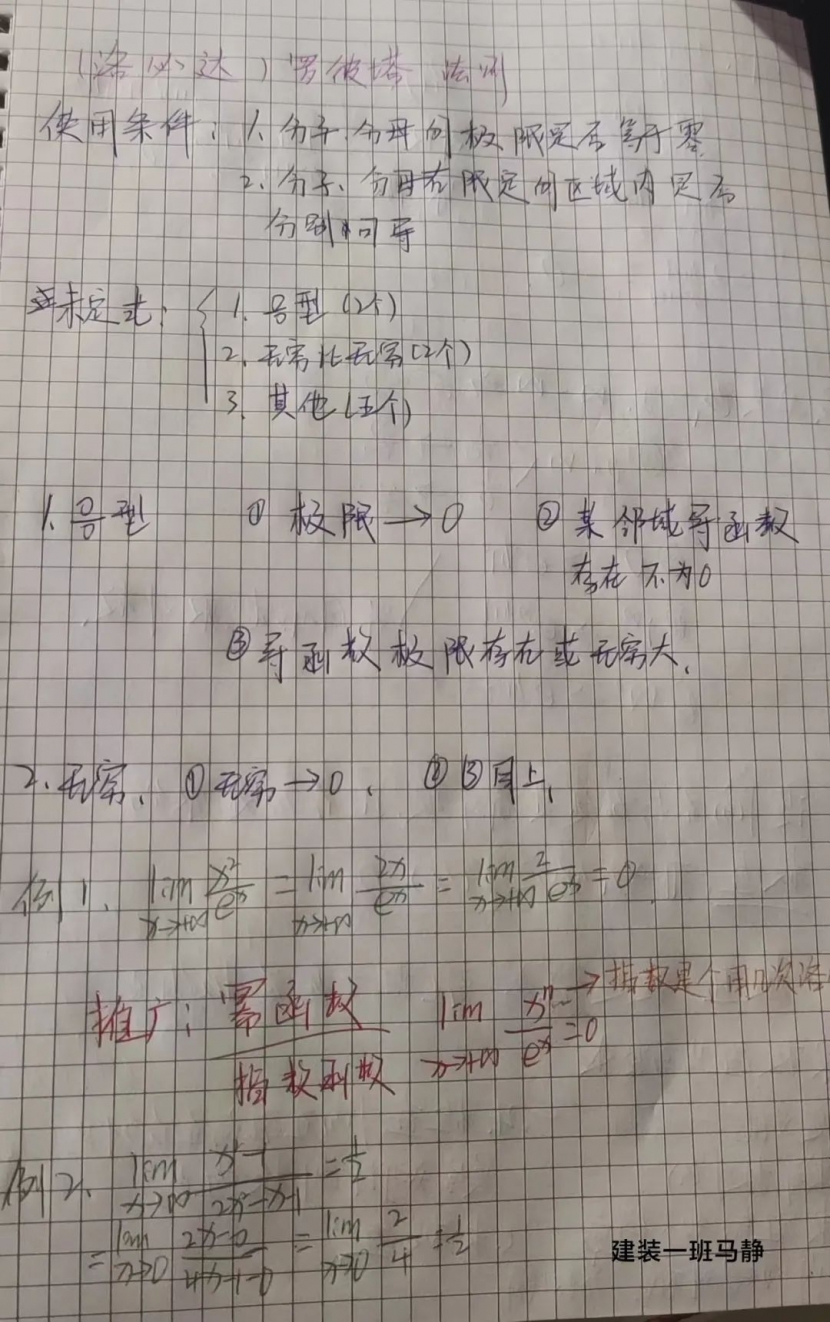 （洛必达）罗彼塔 法则
使用条件：1、分子、分母的极限是否等于零
2、分子、分母在限定的区域内是否
分别可导
未定式：{ 1、0/0型（2个）
2、无穷比无穷（2个）
3、其他（五个）
1、0/0型 ① 极限→0 ② 某邻域导函数
存在 不为0
③导函数极限存在或无穷大、
2、无穷、①无穷→0、 ②③同上、
例1、lim x→+∞ x²/eˣ = lim x→+∞ 2x/eˣ = lim x→+∞ 2/eˣ = 0
推广：幂函数/指数函数 lim x→+∞ xⁿ/eˣ = 0 →指数是个用几次洛
例2、lim x→∞ x²-1/2x²-x-1 = 1/2
= lim 2x-0/4x-1-0 = lim 2/4 = 1/2
建装一班马静